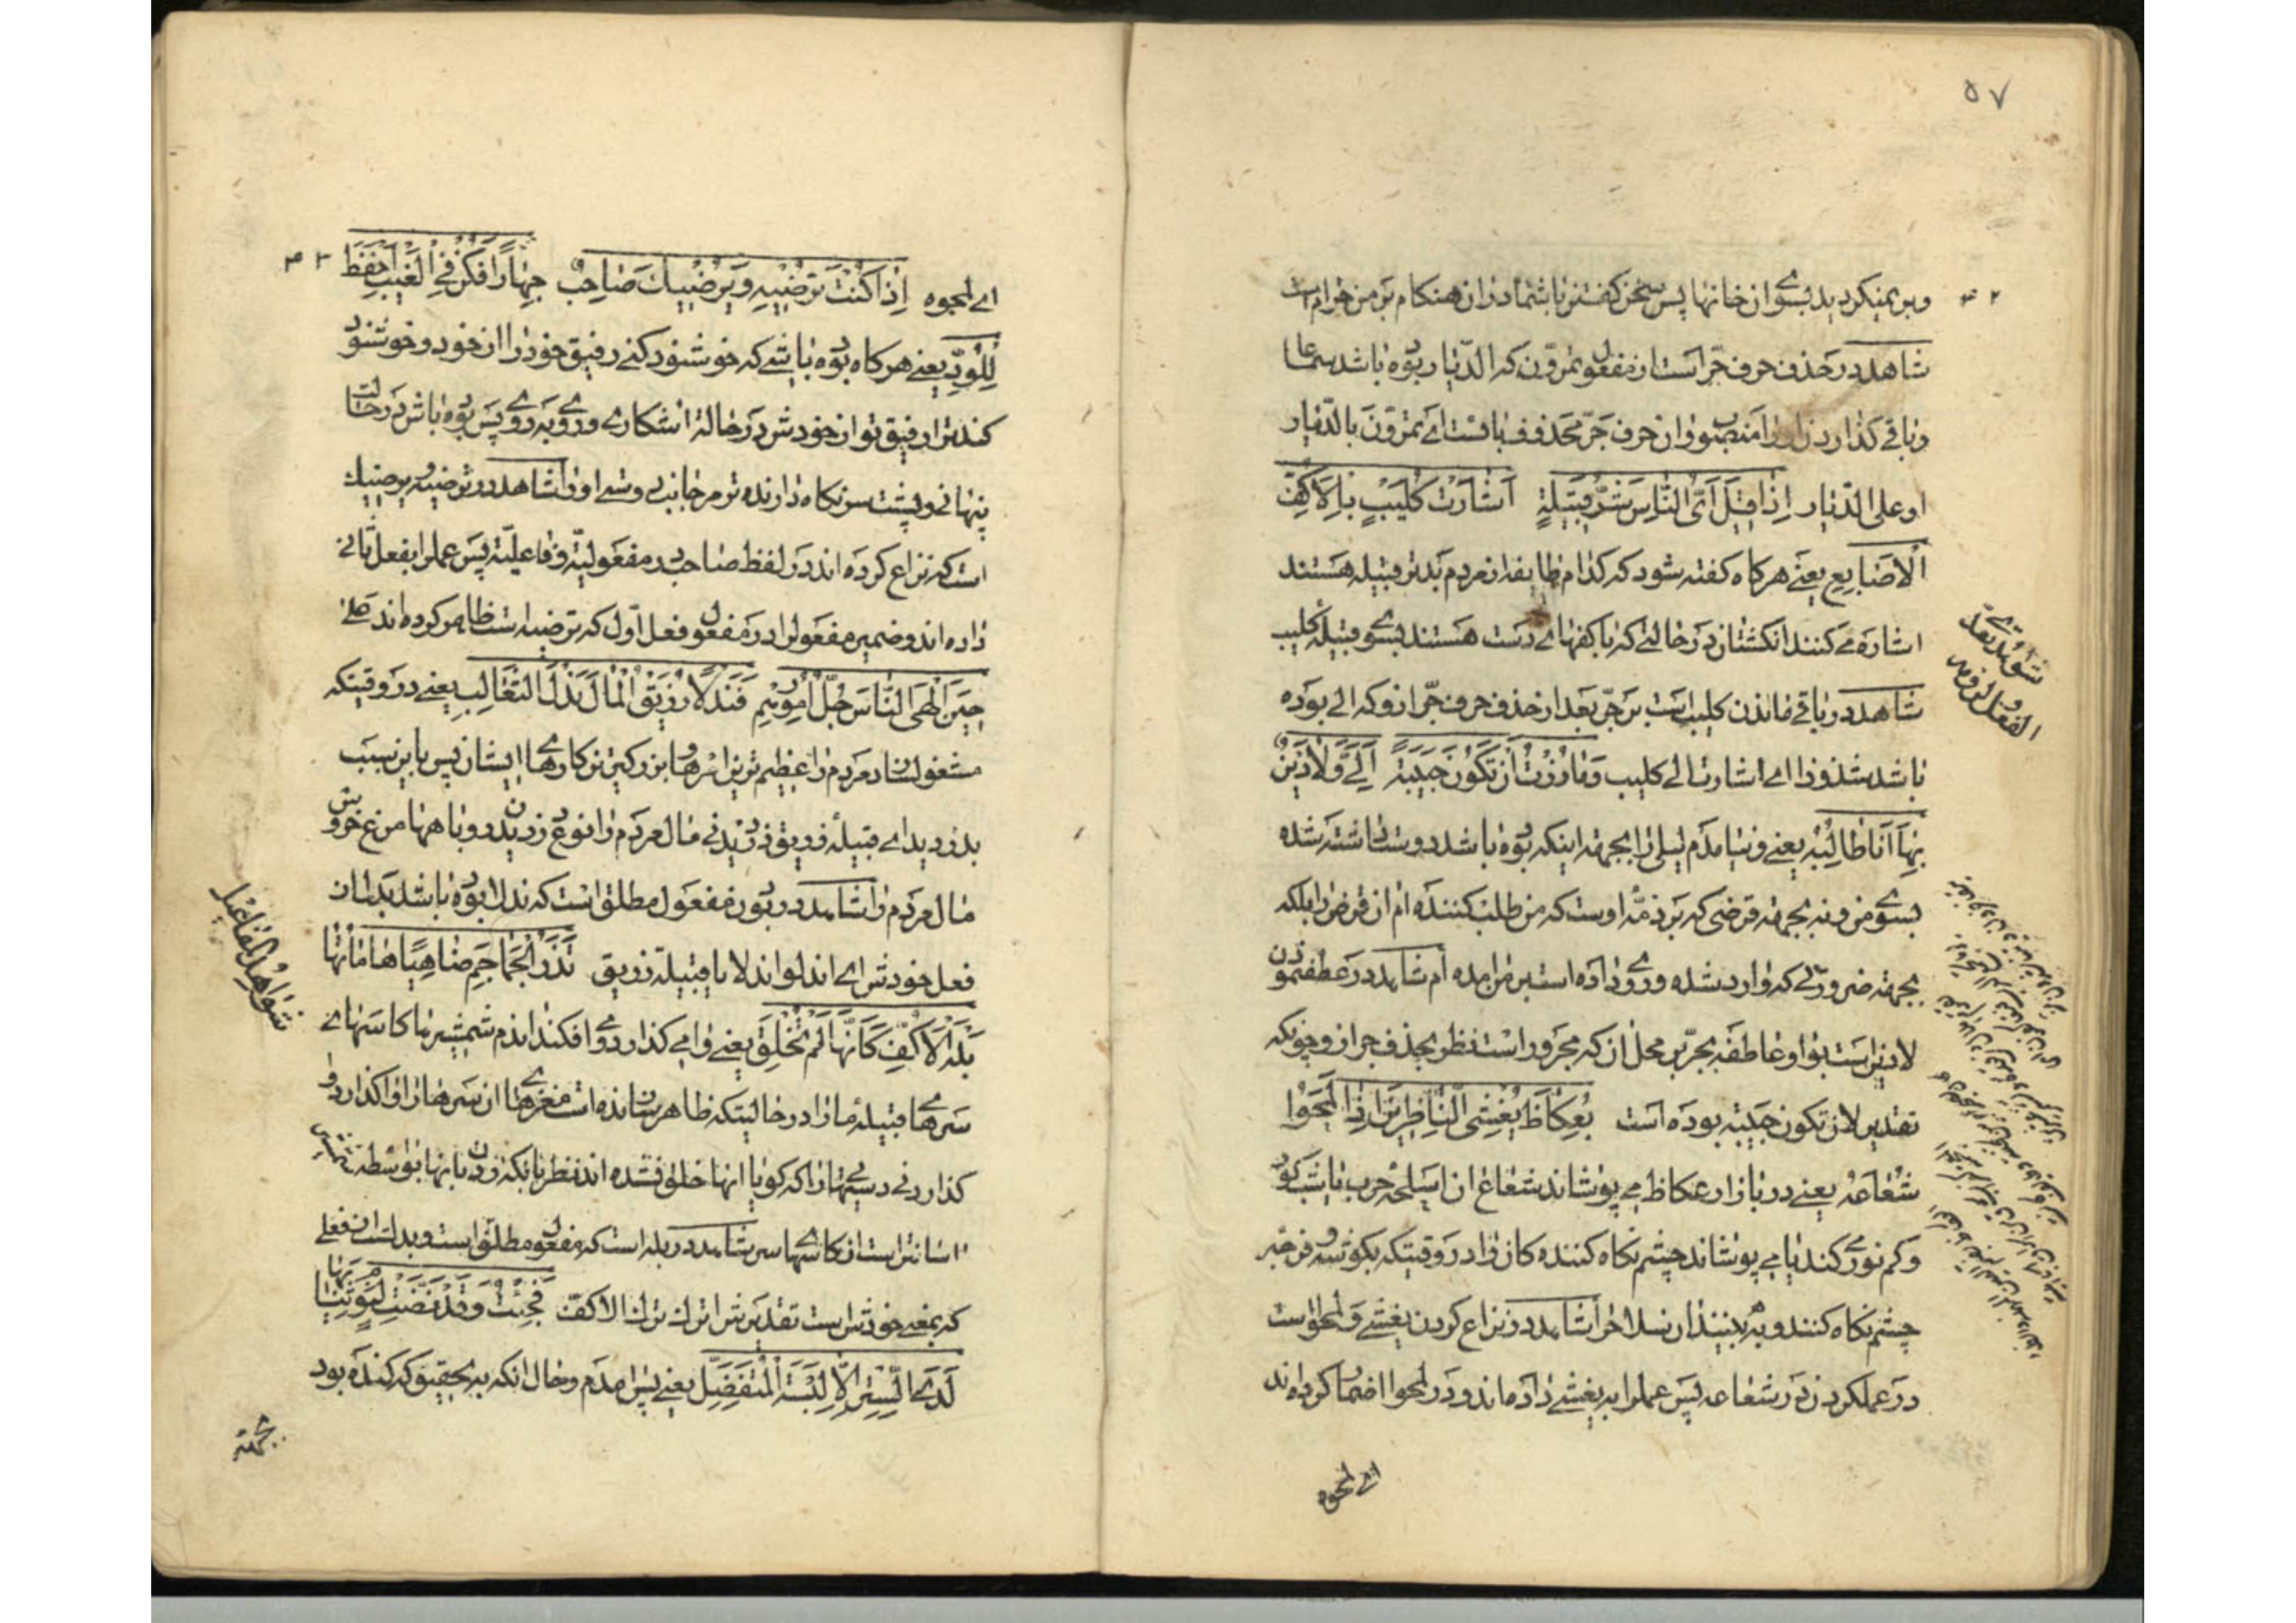 ٥٧
٤٢
وبر نمیکردید بسوی ان خانها پس سخن کفتن با شما در ان هنکام بر من حرام است
شاهد در حذف حرف جرّ است از مفعول تمرّون که الدّیار بوده باشد سماعا
و باقی کذاردن او را منصوب و ان حرف جرّ محذوف با است ای تمرّون بالدّیار
او علی الدّیار اِذا قیلَ اَیُّ النّاسِ شَرُّ قَبیلَةٍ اَشارَتْ کُلَیْبٍ بِالْاَکُفِّ
الْاَصابِعِ یعنی هر کاه کفته شود که کدام طایفه از مردم بدتر قبیله هستند
اشاره می کنند انکشتان در حالتی که با کفهای دست هستند بسوی قبیله کلیب
شاهد در باقی ماندن کلیب است بر جرّ بعد از حذف حرف جرّ از او که الی بوده
باشد شذوذا ای اشارت الی کلیب وَما زُرْتُ اَنْ تَکُونَ حَبیبَةً اِلَیَّ وَلا دَیْنٍ
بِها اَنَا طالِبُهْ یعنی و نیامدم لیلی را بجهته اینکه بوده باشد دوست داشته شده
بسوی من و نه بجهته قرضی که بر ذمّه اوست که من طلب کننده ام ان قرض را بلکه
بجهته ضرورتی که وارد شده و روی داده است بر من امده ام شاهد در عطف نمودن
لا دین است بواو عاطفه بجرّ بر محل ان که مجرور است نظر بحذف جر از او چونکه
تقدیر لان تکون حبیبة بوده است بِعُکاظَ یُغْشِی النّاظِرینَ اِذا لَمَحُوا
شُعاعُهُ یعنی در بازار عکاظ می پوشاند شعاع ان اسلحه حرب یا شب کور
و کم نور می کند یا می پوشاند چشم نکاه کننده کان را در وقتیکه بکوشه
چشم نکاه کنند و به بینند ان سلاح را شاهد در نزاع کردن یغشی و لمحوا است
در عمل کردن در شعاعه پس عمل را به یغشی داده اند و در لمحوا اضمار کرده اند
ای لمحوه
شواهد تعدّی
الفعل و لزومه
٤٣
ای لمحوه اِذا کُنْتَ تُرْضیهِ وَیُرْضیکَ صاحِبٌ جِهاراً فَکُنْ فِی الْغَیْبِ اَحْفَظَ
لِلْوُدِّ یعنی هر کاه بوده باشی که خوشنود کنی رفیق خود را از خود و خوشنود
کند ترا رفیق تو از خودش در حالة اشکاری و روی به روی پس بوده باش در حالت
پنهانی و پشت سر نکاه دارنده تر مر جانب دوستی او را شاهد در ترضیه و یرضیک
است که نزاع کرده اند در لفظ صاحب در مفعولیّة و فاعلیّة پس عمل را بفعل ثانی
داده اند و ضمیر مفعول را در مفعول فعل اوّل که ترضیه است ظاهر کرده اند عَلی
حینَ اَلْهَی النّاسَ جُلُّ اُمُورِهِمْ فَنَدْلاً زُرَیْقُ الْمالَ نَدْلَ الثَّعالِبِ یعنی در وقتیکه
مشغول ساخت مردم را عظیم ترین امرها و بزرکترین کارهای ایشان پس باین سبب
بدزدید ای قبیله زریق دزدیدنی مال مردم را نوع دزدیدن روباهها مرغ خروس
مال مردم را شاهد در بودن مفعول مطلق است که ندلا بوده باشد بدل از
فعل خودش ای اندلوا ندلا یا قبیلة زریق تَذَرُ الْجَماجِمَ ضاحِیاً هاماتُها
بَلْهَ الْاَکُفِّ کَاَنَّها لَمْ تُخْلَقِ یعنی وا می کذارد و می افکند از دم شمشیرها کاسهای
سرهای قبیله ما را در حالیتکه ظاهر شاننده است مغزهای ان سرها را واکذارد
کذاردنی دستها را که کویا انها خلق نشده اند نظر بانکه زدن بانها بواسطه شمشیر
اسانتر است از کاسهای سر شاهد در بله است که مفعول مطلق است و بدل است از فعلی
که بمعنی خودش است تقدیرش اترک ترک الاکفّ فَجِئْتُ وَقَدْ نَضَتْ لِنَوْمٍ ثِیابَها
لَدَی السِّتْرِ اِلّا لِبْسَةَ الْمُتَفَضِّلِ یعنی پس امدم و حال انکه به تحقیق که کنده بود
شواهد المفاعیل
بجهته